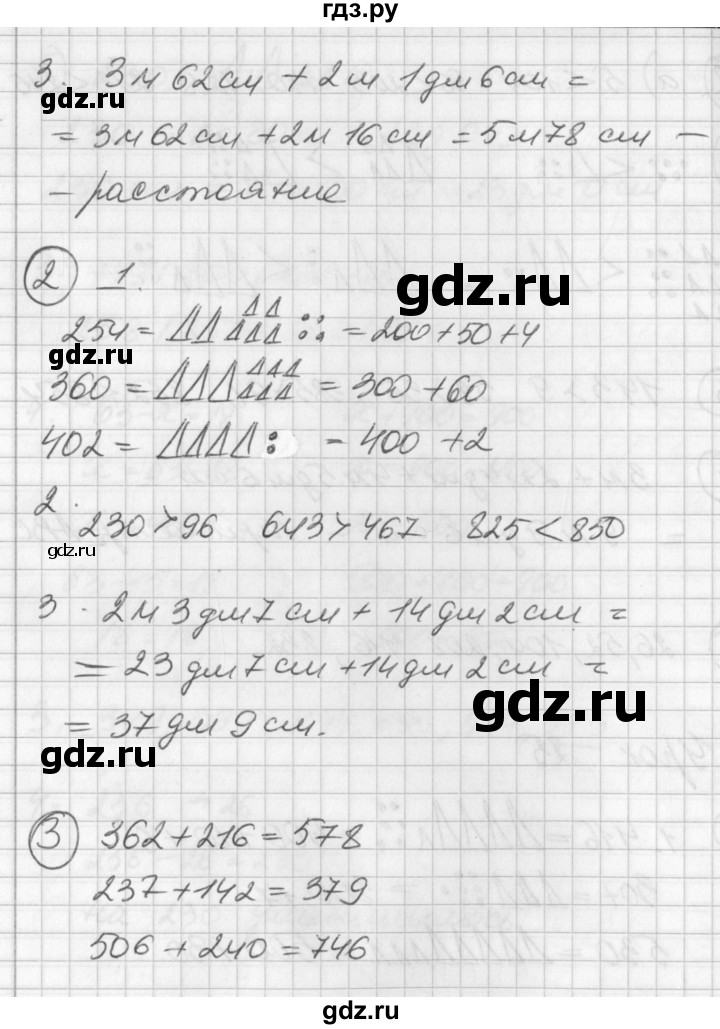 гдз.ру
3. 3м 62см + 2м 1дм 6см =
gdz.ru
= 3м 62см + 2м 16см = 5м 78 см —
— расстояние
2 1.
gdz.ru
254 = = 200 + 50 + 4
gdz.ru
360 = = 300 + 60
402 = - 400 + 2
2.
230 > 96 643 > 467 825 < 850
gdz.ru
3. 2м 3дм 7см + 14дм 2см =
= 23 дм 7см + 14дм 2см =
gdz.ru
= 37дм 9см.
gdz.ru
3 362 + 216 = 578
237 + 142 = 379
506 + 240 = 746
gdz.ru